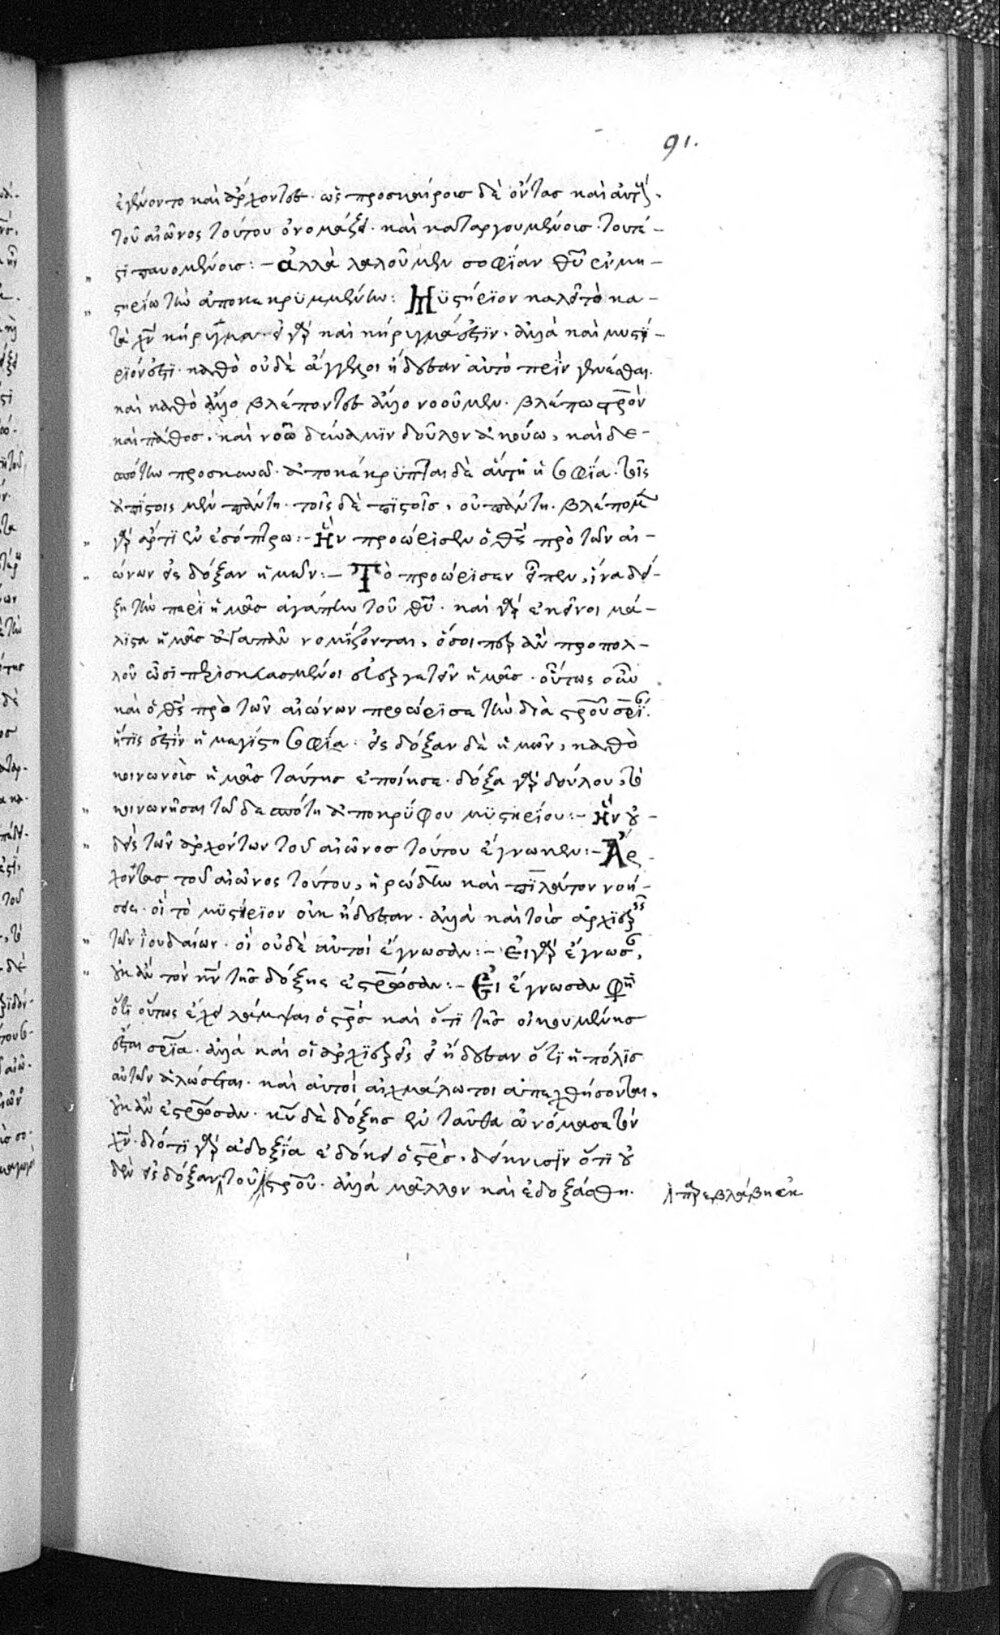 91.
ἐγένοντο καὶ ἄρχοντες· ὡς προσκαίροις δὲ ὄντας καὶ αὐτῆς
τοῦ αἰῶνος τούτου ὀνομάζει· καὶ καταργουμένοις· τουτέ-
στι παυομένοις:- Ἀλλὰ λαλοῦμεν σοφίαν θῦ ἐν μυ-
στηρίω τὴν ἀποκεκρυμμένην: Μυστήριον καλεῖ τὸ κα-
τὰ χν κήρυγμα· ὃ γὰρ καὶ κήρυγμά ἐστιν· ἀλλὰ καὶ μυστή-
ριόν ἐστι· καθὸ οὐδὲ ἄγγελοι ἤδεσαν αὐτὸ πρὶν γενέσθαι·
καὶ καθὸ ἄλλο βλέποντες ἄλλο νοοῦμεν· βλέπω στρον
καὶ πάθος, καὶ νοῶ δύναμιν δοῦλον ἀκούω, καὶ δε-
σπότην προσκυνῶ· ἀποκέκρυπται δὲ αὕτη ἡ σοφία· τοῖς
ἀπίστοις μὲν πάντη· τοῖς δὲ πιστοῖς, οὐ πάντη· βλέπομεν
γὰρ ἄρτι ἐν ἐσόπτρω:- Ἣν προώρισεν ὁ θς πρὸ τῶν αἰ-
ώνων εἰς δόξαν ἡμῶν:- Τὸ προώρισεν εἶπεν, ἵνα δεί-
ξη τὴν περὶ ἡμᾶς ἀγάπην τοῦ θυ· καὶ γὰρ ἐκεῖνοι μά-
λιστα ἡμᾶς ἀγαπᾶν νομίζονται, ὅσοι περ ἂν προπολ-
λοῦ ὦσι παρεσκευασμένοι εὐεργετεῖν ἡμᾶς· οὕτως οὖν
καὶ ὁ θς πρὸ τῶν αἰώνων προώρισε τὴν διὰ στροῦ σρίαν·
ἥτις ἐστὶν ἡ μεγίστη σοφία· εἰς δόξαν δὲ ἡμῶν, καθὸ
κοινωνοὺς ἡμᾶς ταύτης ἐποίησε· δόξα γὰρ δούλου, τὸ
κοινωνῆσαι τῶ δεσπότη ἀποκρύφου μυστηρίου:- Ἣν οὐ-
δεὶς τῶν ἀρχόντων τοῦ αἰῶνος τούτου ἔγνωκεν:- Ἄρ-
χοντας τοῦ αἰῶνος τούτου, ἡρώδην καὶ πιλάτον νοή-
σεις· οἳ τὸ μυστήριον οὐκ ἤδεσαν· ἀλλὰ καὶ τοὺς ἀρχιερεῖς
τῶν ἰουδαίων· οἳ οὐδὲ αὐτοὶ ἔγνωσαν:- Εἰ γὰρ ἔγνωσαν,
οὐκ ἂν τὸν κν τῆς δόξης ἐσταύρωσαν:- Εἰ ἔγνωσαν φησὶν
ὅτι οὕτως ἔχει λάμψαι ὁ στρς καὶ ὅτι τῆς οἰκουμένης
ἔσται σρία· ἀλλὰ καὶ οἱ ἀρχιερεῖς εἰ ἤδεσαν ὅτι ἡ πόλις
αὐτῶν ἁλώσεται· καὶ αὐτοὶ αἰχμάλωτοι ἀπαχθήσονται,
οὐκ ἂν ἐσταύρωσαν· κν δὲ δόξης ἐνταῦθα ὠνόμασε τὸν
χν· διότι γὰρ ἀδοξία ἐδόκει ὁ στρς, δείκνυσιν ὅτι οὐ-
δὲν εἰς δόξαν τοῦ στροῦ· ἀλλὰ μᾶλλον καὶ ἐδοξάσθη·
παρεβλάβη ἐκ